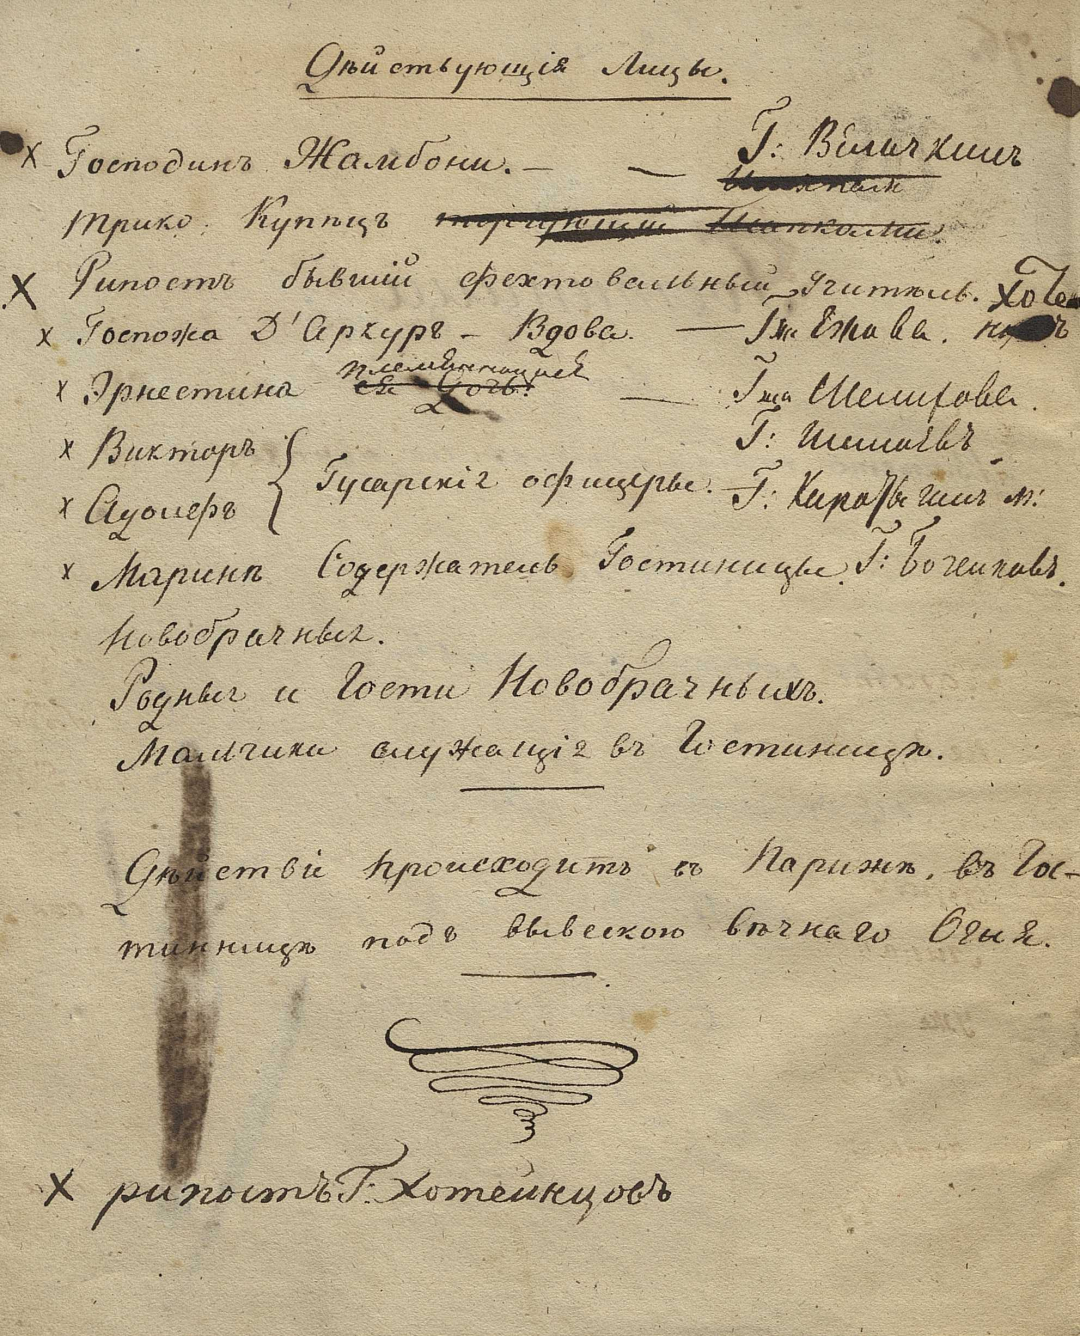 Дѣйствующія Лицы.
х Господинъ Жамбони. — — Г: Величкинъ
Трико, Купецъ торгующій Шапками.
х Рипостъ бывшій фехтовальный учитель. Хотеи
х Госпожа Д'Аркуръ — Вдова. — Гжа Ежова.
племянница ея
х Эрнестина ея Дочь. — Гжа Шелихова.
х Викторъ Г: Шемаевъ
Гусарскіе офицеры.
х Адольфъ — Г: Каратыгинъ м:
х Маринъ Содержатель Гостиницы. Г: Боченковъ.
Новобрачные.
Родные и Гости Новобрачныхъ.
Мальчики служащіе въ Гостиницѣ.
Дѣйствіе происходитъ въ Парижѣ, въ Гос-
тинницѣ подъ вывескою вѣчнаго Огня.
х рипостъ Г: Хотеинцовъ